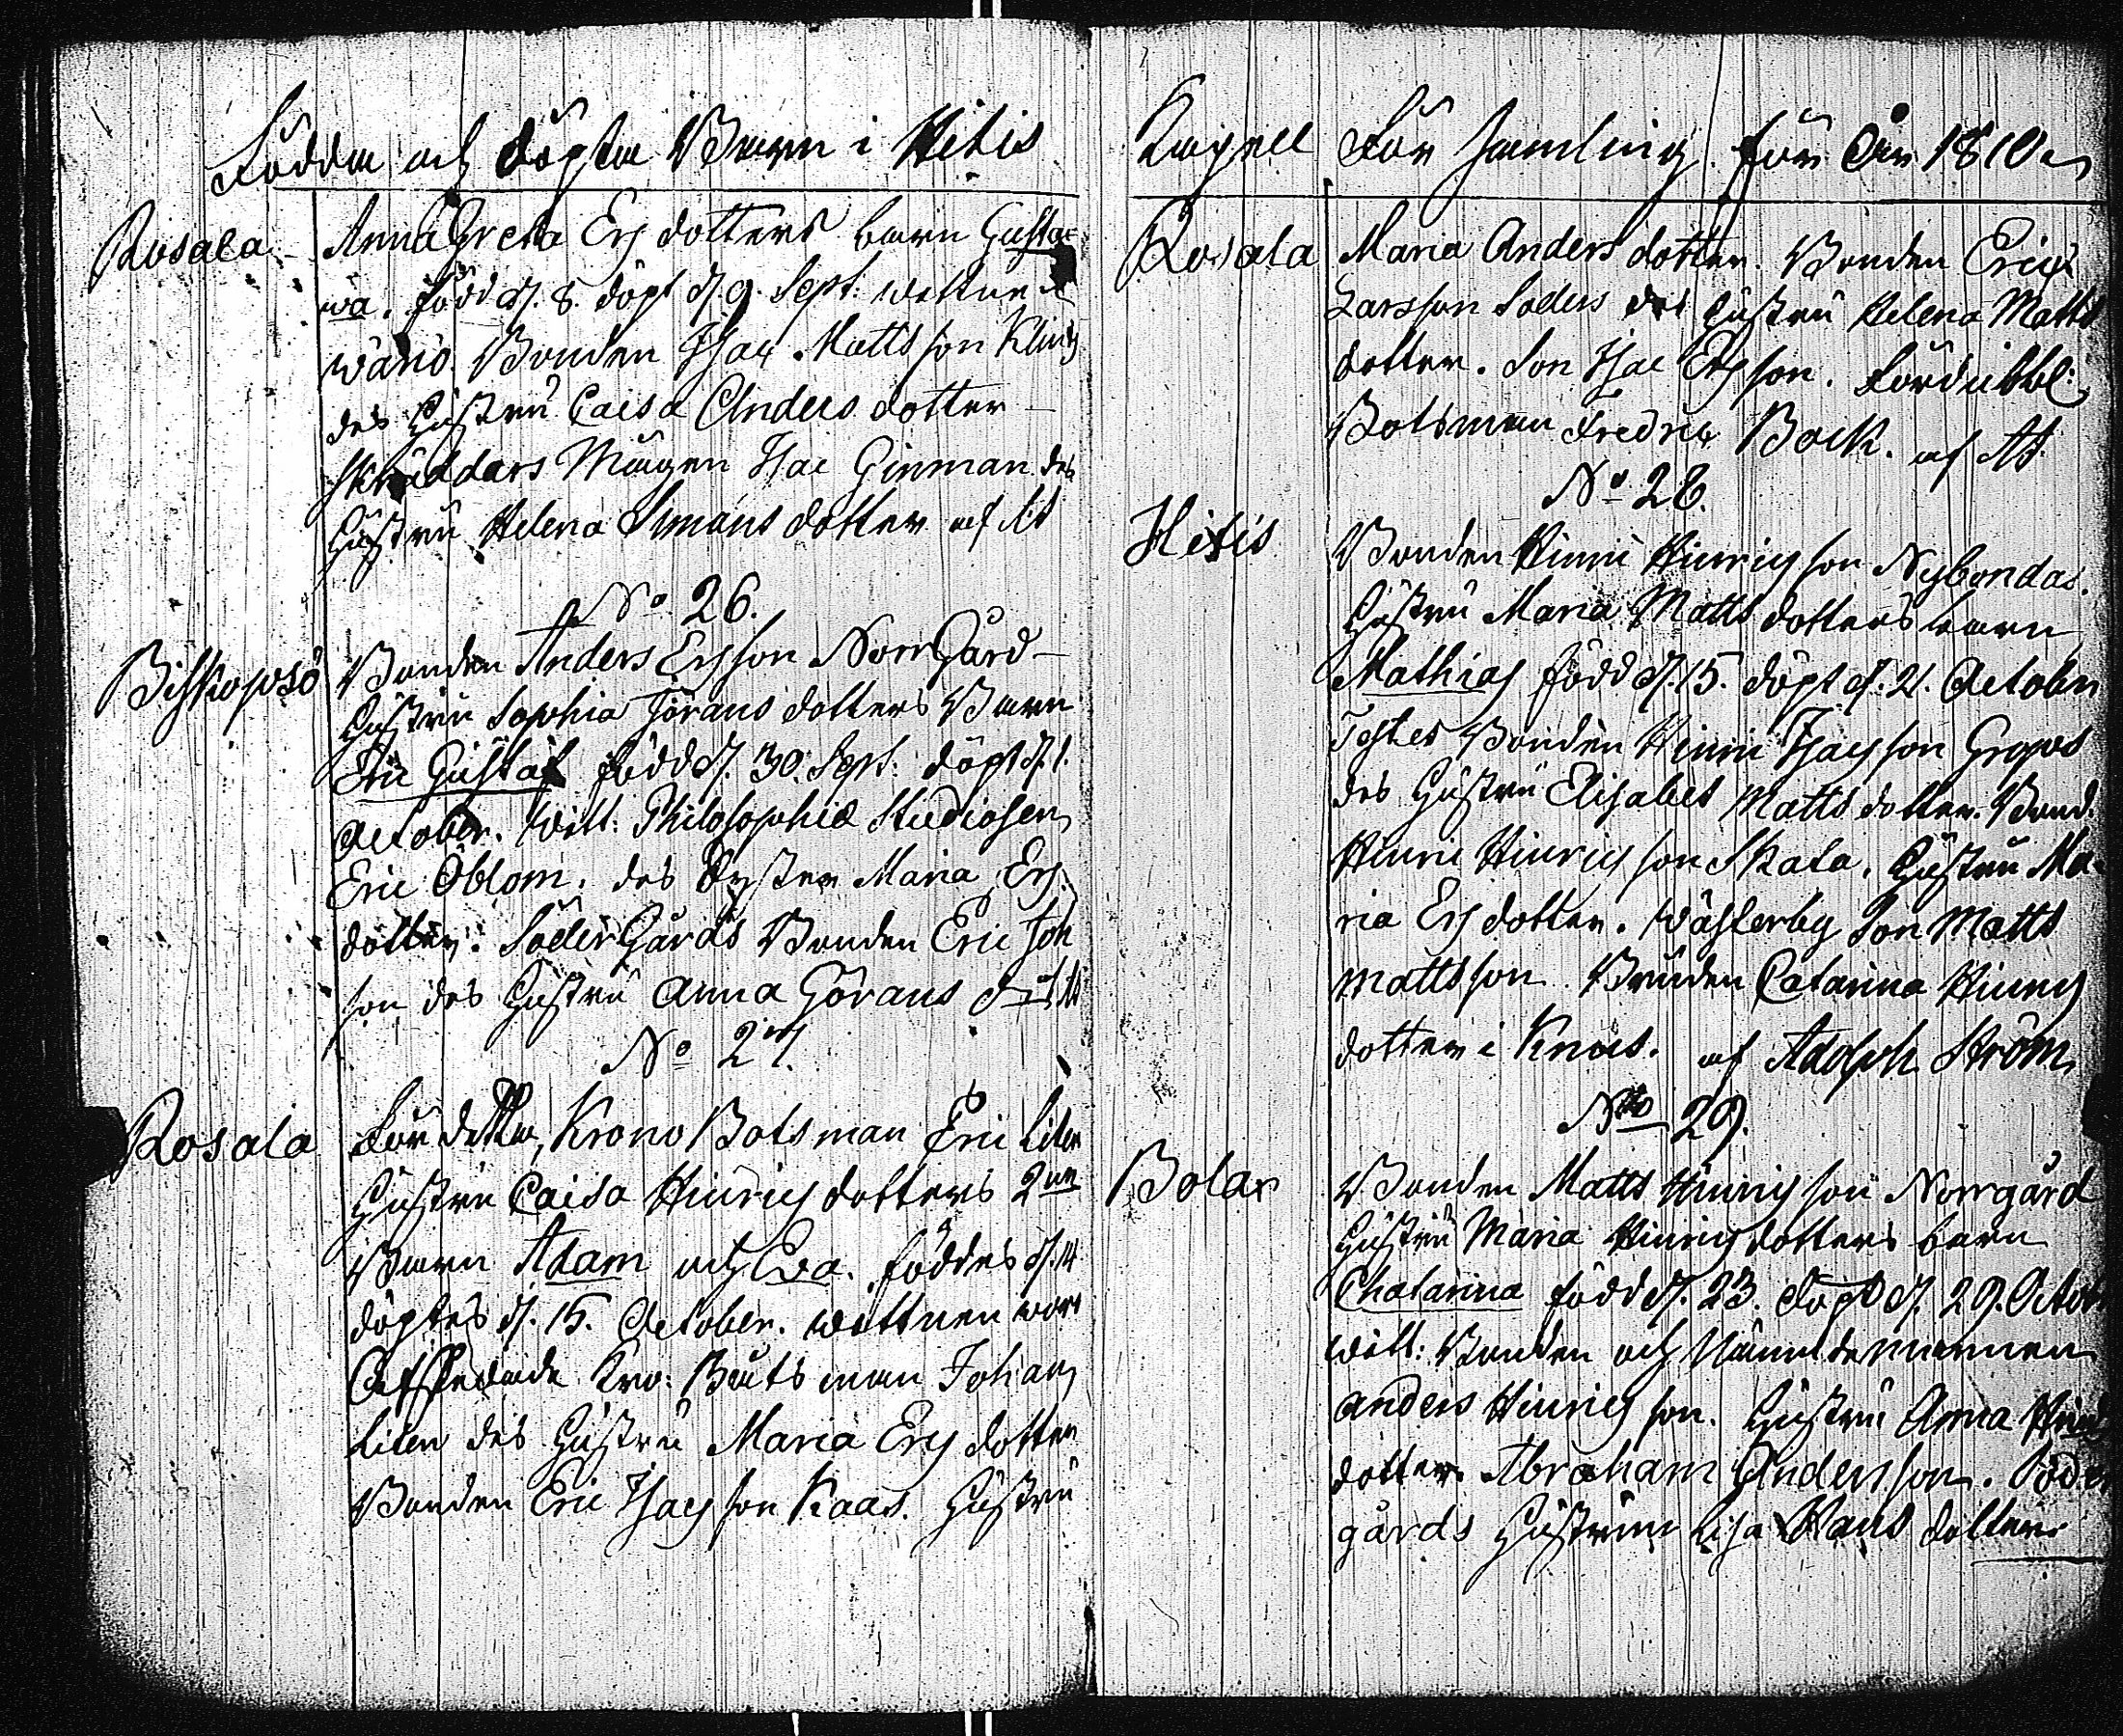 Födda och döpta Barn i Hitis
Rosala Anna Greta Ers dotters barn Gusta-
wa. född d. 8. döpt d. 9. Sept: wittne
Wänö. Bonden Isac Mattsson
des Hustru Caisa Anders dotter
Skräddars Isac Ginman des
Hustru Helena Simons dotter af AS
No 26.
Biskopsö Bonden Anders Ersson NorrGård
Hustru Sophia Jörans dotters Barn
Eric Gustaf född d. 30. Sept: döpt d. 1.
October. Witt: Philosophiæ Studiosen
Eric Öblom. des Syster Maria Ers
dotter. SöderGårds Bonden Eric Joh
son des Hustru Anna Görans
No 27.
Rosala För detta Krono Botsman Eric Liten
Hustru Caisa Hinrics dotters 2ne
Barn Adam och Eva. föddes d. 14
döptes d. 15. October. wittnen voro
Afskedade Kro: Båtsman Johan
Liten des Hustru Maria Ers dotter
Bonden Eric Isacsson Kaas. Hustru
Kapell Församling för År 1810
Rosala Maria Anders dotter. Bonden Erics
Larsson Söders des Hustru Helena Matts
dotter. Son Isac Ersson. Fördubbl:
Botsman Fredric Bock. af AS.
No 28.
Hitis Bonden Hinric Hinricsson Nybondas.
Hustru Maria Matts dotters barn
Mathias född d. 15. döpt d. 21. October
Testes Bonden Hinric Isacsson Grops
des Hustru Elisabet Matts dotter. Bond.
Hinric Hinricsson Skata. Hustru Ma-
ria Ers dotter. Wästerby Son Matts
Mattsson Catarina Hinrics
dotter i af Adolph Ström
No 29.
Bolax Bonden Matts Hinricsson Norrgård
Hustru Maria Hinrics dotters barn
Chatarina född d. 23. döpt d. 29. Octob
Witt: Bonden och Nämndemannen
Anders Hinricsson. Hustru Anna
dotter. Abraham Andersson. Söder
gårds Hustrun Lisa Hans dotter.